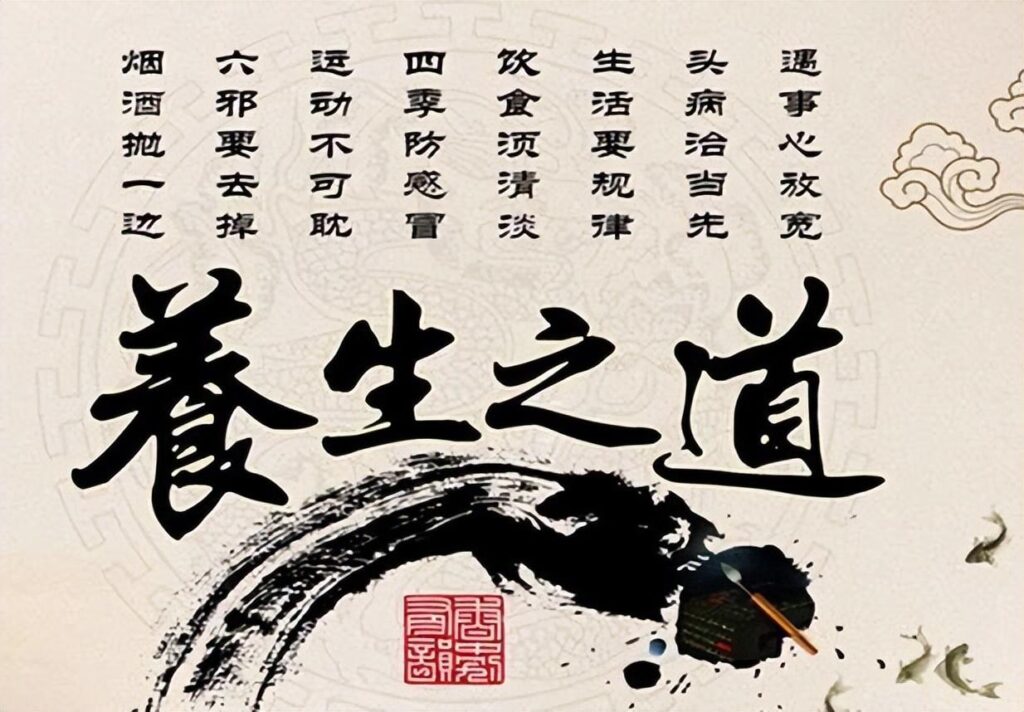 遇事心放宽
头病治当先
生活要规律
饮食须清淡
四季防感冒
运动不可耽
六邪要去掉
烟酒抛一边
養生之道